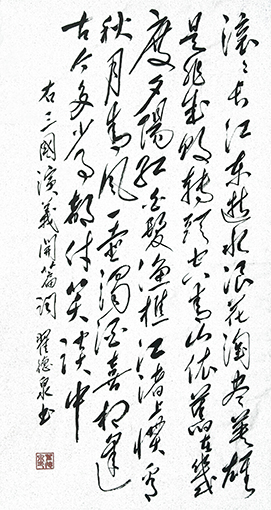 滚々长江东逝水浪花淘尽英雄
是非成败转头空青山依旧在幾
度夕陽红白髮渔樵江渚上惯看
秋月春风一壶濁酒喜相逢
古今多少事都付笑谈中
右三國演義開篇词 翟德泉书